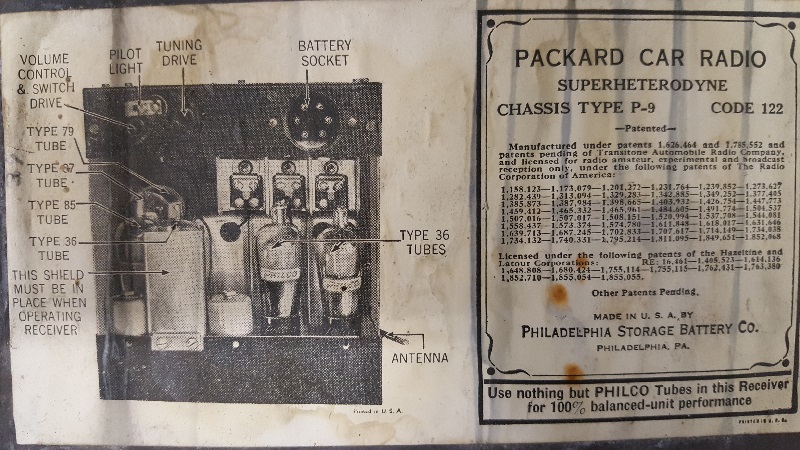 VOLUME
CONTROL
& SWITCH
DRIVE
PILOT
LIGHT
TUNING
DRIVE
BATTERY
SOCKET
TYPE 79
TUBE
TUBE
TYPE 85
TUBE
TYPE 36
TUBE
THIS SHIELD
MUST BE IN
PLACE WHEN
OPERATING
RECEIVER
TYPE 36
TUBES
PHILCO
ANTENNA
Printed in U. S. A.
PACKARD CAR RADIO
SUPERHETERODYNE
CHASSIS TYPE P-9 CODE 122
—Patented—
Manufactured under patents 1,626,464 and 1,785,552 and
patents pending of Transitone Automobile Radio Company,
and licensed for radio amateur, experimental and broadcast
reception only, under the following patents of The Radio
Corporation of America:
1,158,123—1,173,079—1,201,272—1,231,764—1,239,852—1,273,627
1,282,439—1,313,094—1,329,283—1,342,885—1,349,252—1,377,405
1,385,873—1,387,984—1,398,665—1,403,932—1,426,754—1,447,773
1,459,412—1,465,332—1,465,961—1,484,605—1,493,774—1,504,537
1,507,016—1,507,017—1,508,151—1,520,994—1,537,708—1,544,081
1,558,437—1,573,374—1,574,780—1,611,848—1,618,017—1,631,646
1,639,713—1,687,245—1,702,833—1,707,617—1,714,149—1,734,038
1,734,132—1,740,331—1,795,214—1,811,095—1,849,651—1,852,868
Licensed under the following patents of the Hazeltine and
Latour Corporations: RE: 16,461—1,405,523—1,614,136
1,648,808—1,680,424—1,755,114—1,755,115—1,762,431—1,763,380
1,852,710—1,855,054—1,855,055.
Other Patents Pending.
MADE IN U. S. A. BY
PHILADELPHIA STORAGE BATTERY CO.
PHILADELPHIA, PA.
Use nothing but PHILCO Tubes in this Receiver
for 100% balanced-unit performance
PRINTED IN U. S. A.